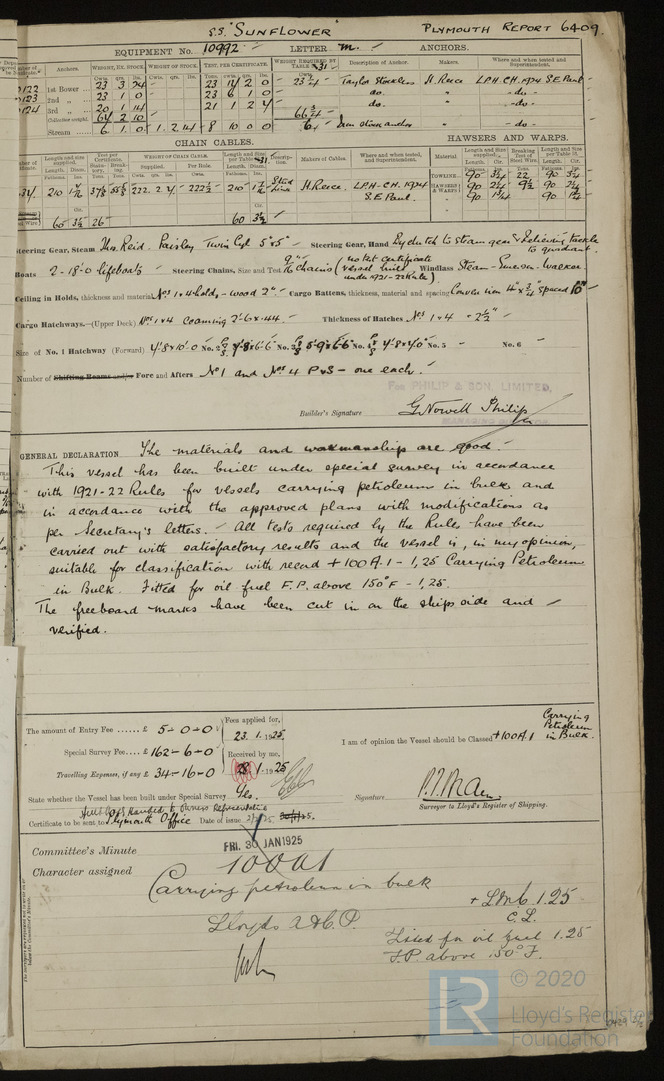 S.S. "SUNFLOWER PLYMOUTH REPORT 6409.
EQUIPMENT No. 10992 LETTER m. ANCHORS.
Anchors. WEIGHT, EX. STOCK. WEIGHT OF STOCK. TEST, PER CERTIFICATE. WEIGHT REQUIRED BY TABLE 31 Description of Anchor. Makers. Where and when tested and Superintendent.
1st Bower 23 3 24 23 14 2 0 23¾ Taylor Stockless H. Reece L.P.H. C.H. 1924 S.E. Paul
2nd " 23 1 0 23 6 1 0 do. do.
3rd " 20 1 14 21 1 2 4 do. do.
Collective weight. 67 2 10 66¾
Stream 6 1 0 1 2 14 8 10 0 0 6 do.
CHAIN CABLES. HAWSERS AND WARPS.
Length and size supplied. Test per Certificate. WEIGHT OF CHAIN CABLE. Length and Size per Table 31 Description. Makers of Cables. Where and when tested, and Superintendent. Material Length and size supplied. Breaking Test of Steel Wire. Length and size per Table 31.
Fathoms. Supplied. Per Rule. Fathoms. Length. Cir. Tons. Length. Cir.
TOWLINE 90 3¼ 22 90 3¼
210 222.2.4 222½ 210 Stud Link H. Reece L.P.H-CH. 1924 S.E. Paul. HAWSERS & WARPS 90 2¼ 9½ 90 2¼
90 1¾ 90 1¾
60 3½ 26 60 3½
Steering Gear, Steam Thos Reid. Paisley Twin Cyl 5"x5" Steering Gear, Hand By clutch to steam gear & Relieving tackle to quadrant
Boats 2-18-0 lifeboats Steering Chains, Size and Test chains (no test certificate vessel built under 1921-22 Rule) Windlass Steam-Emerson-Walker
Ceiling in Holds, thickness and material Nos 1 & 4 holds - wood 2" Cargo Battens, thickness, material and spacing 4" x ¾" spaced 10"
Cargo Hatchways.—(Upper Deck) Nos 1 & 4 coaming 2'-6 x .44. Thickness of Hatches Nos 1 & 4 - 2½"
Size of No. 1 Hatchway (Forward) 4'-8 x 10'-0 No. 2 4'-8 x 6'-6 No. 3 5'-9 x 6'-6 No. 4 4'-8 x 4'0 No. 5 - No. 6 -
Number of Shifting Beams and/or Fore and Afters No 1 and Nos 4 P & S - one each.
FOR PHILIP & SON, LIMITED,
Builder's Signature G. Nowell Philip
MANAGING
GENERAL DECLARATION The materials and workmanship are good.
This vessel has been built under special survey in accordance
with 1921-22 Rules for vessels carrying petroleum in bulk and
in accordance with the approved plans with modifications as
per Secretary's letters. All tests required by the Rules have been
carried out with satisfactory results and the vessel is, in my opinion,
suitable for classification with record +100A.1 - 1,25 Carrying Petroleum
in Bulk. Fitted for oil fuel F.P. above 150°F - 1,25.
The freeboard marks have been cut in on the ships side and
verified.
The amount of Entry Fee ...... £ 5-0-0 Fees applied for, 23.1.1925
Special Survey Fee .... £ 162-6-0 Received by me,
Travelling Expenses, if any £ 34-16-0 28.1.1925
I am of opinion the Vessel should be Classed +100A.1 Carrying Petroleum in Bulk.
State whether the Vessel has been built under Special Survey Yes.
Signature
Surveyor to Lloyd's Register of Shipping.
handed to owners Representative
Certificate to be sent to Plymouth Office Date of issue
FRI. 30 JAN 1925
Committee's Minute
Character assigned 100A1
Carrying petroleum in bulk
Lloyds A & C.P.
+ LMC 1.25
C.L.
Fitted for oil fuel 1.25
F.P. above 150°F.
© 2020
LR
Lloyd's Register
Foundation